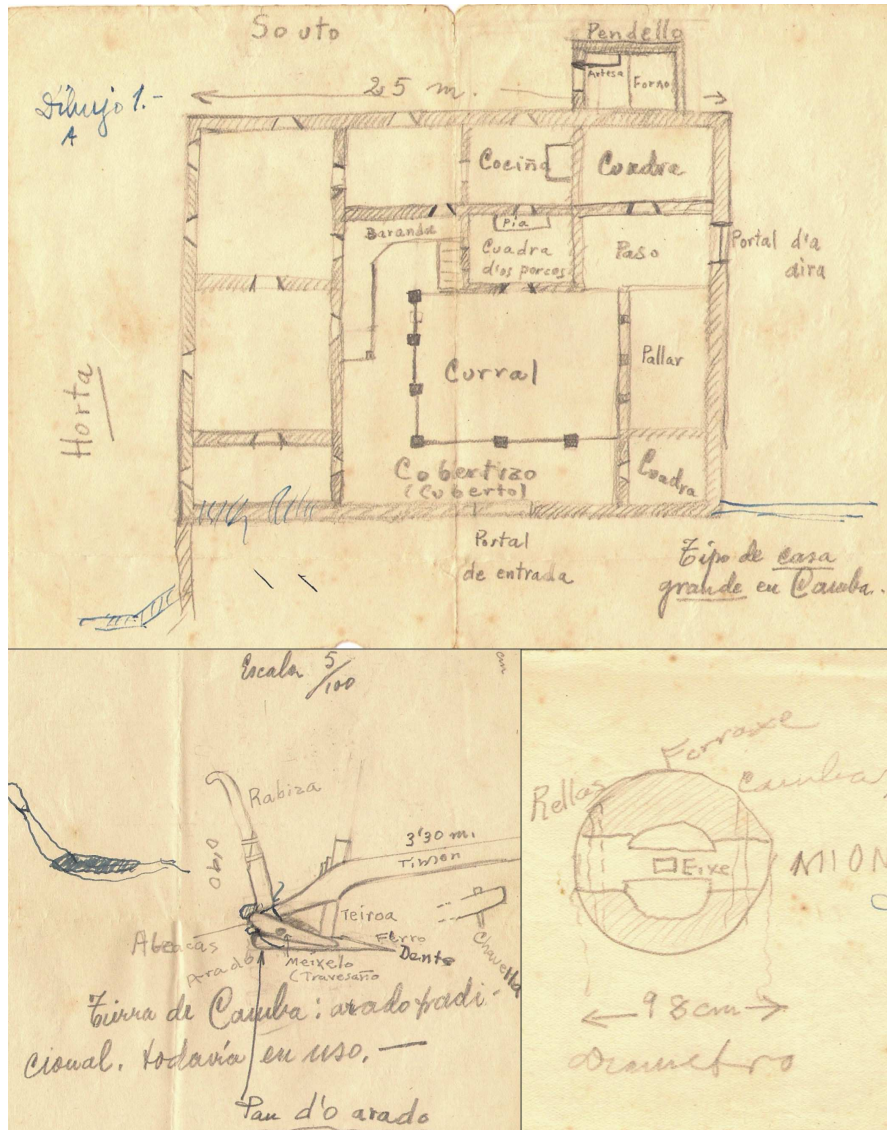 Souto
Pendello
Artesa
Forno
Dibujo 1.-
A
25 m.
Cociña
Cuadra
Baranda
Pía
Cuadra
d'os porcos
Paso
Portal d'a
aira
Horta
Curral
Pallar
Cobertizo
(Cuberto)
Cuadra
Portal
de entrada
Tipo de casa
grande en Camba.
Escala 5/100
cm
Rabiza
0'90
3'30 m.
Timon
Teiroa
Ferro
Dente
Chavella
Arado
Meixelo
(Travesaño
Tierra de Camba: arado tradi-
cional. todavía en uso. —
Pau d'o arado
Ferraxe
Rellas
Cambas
Eixe
MION
98 cm
Diametro